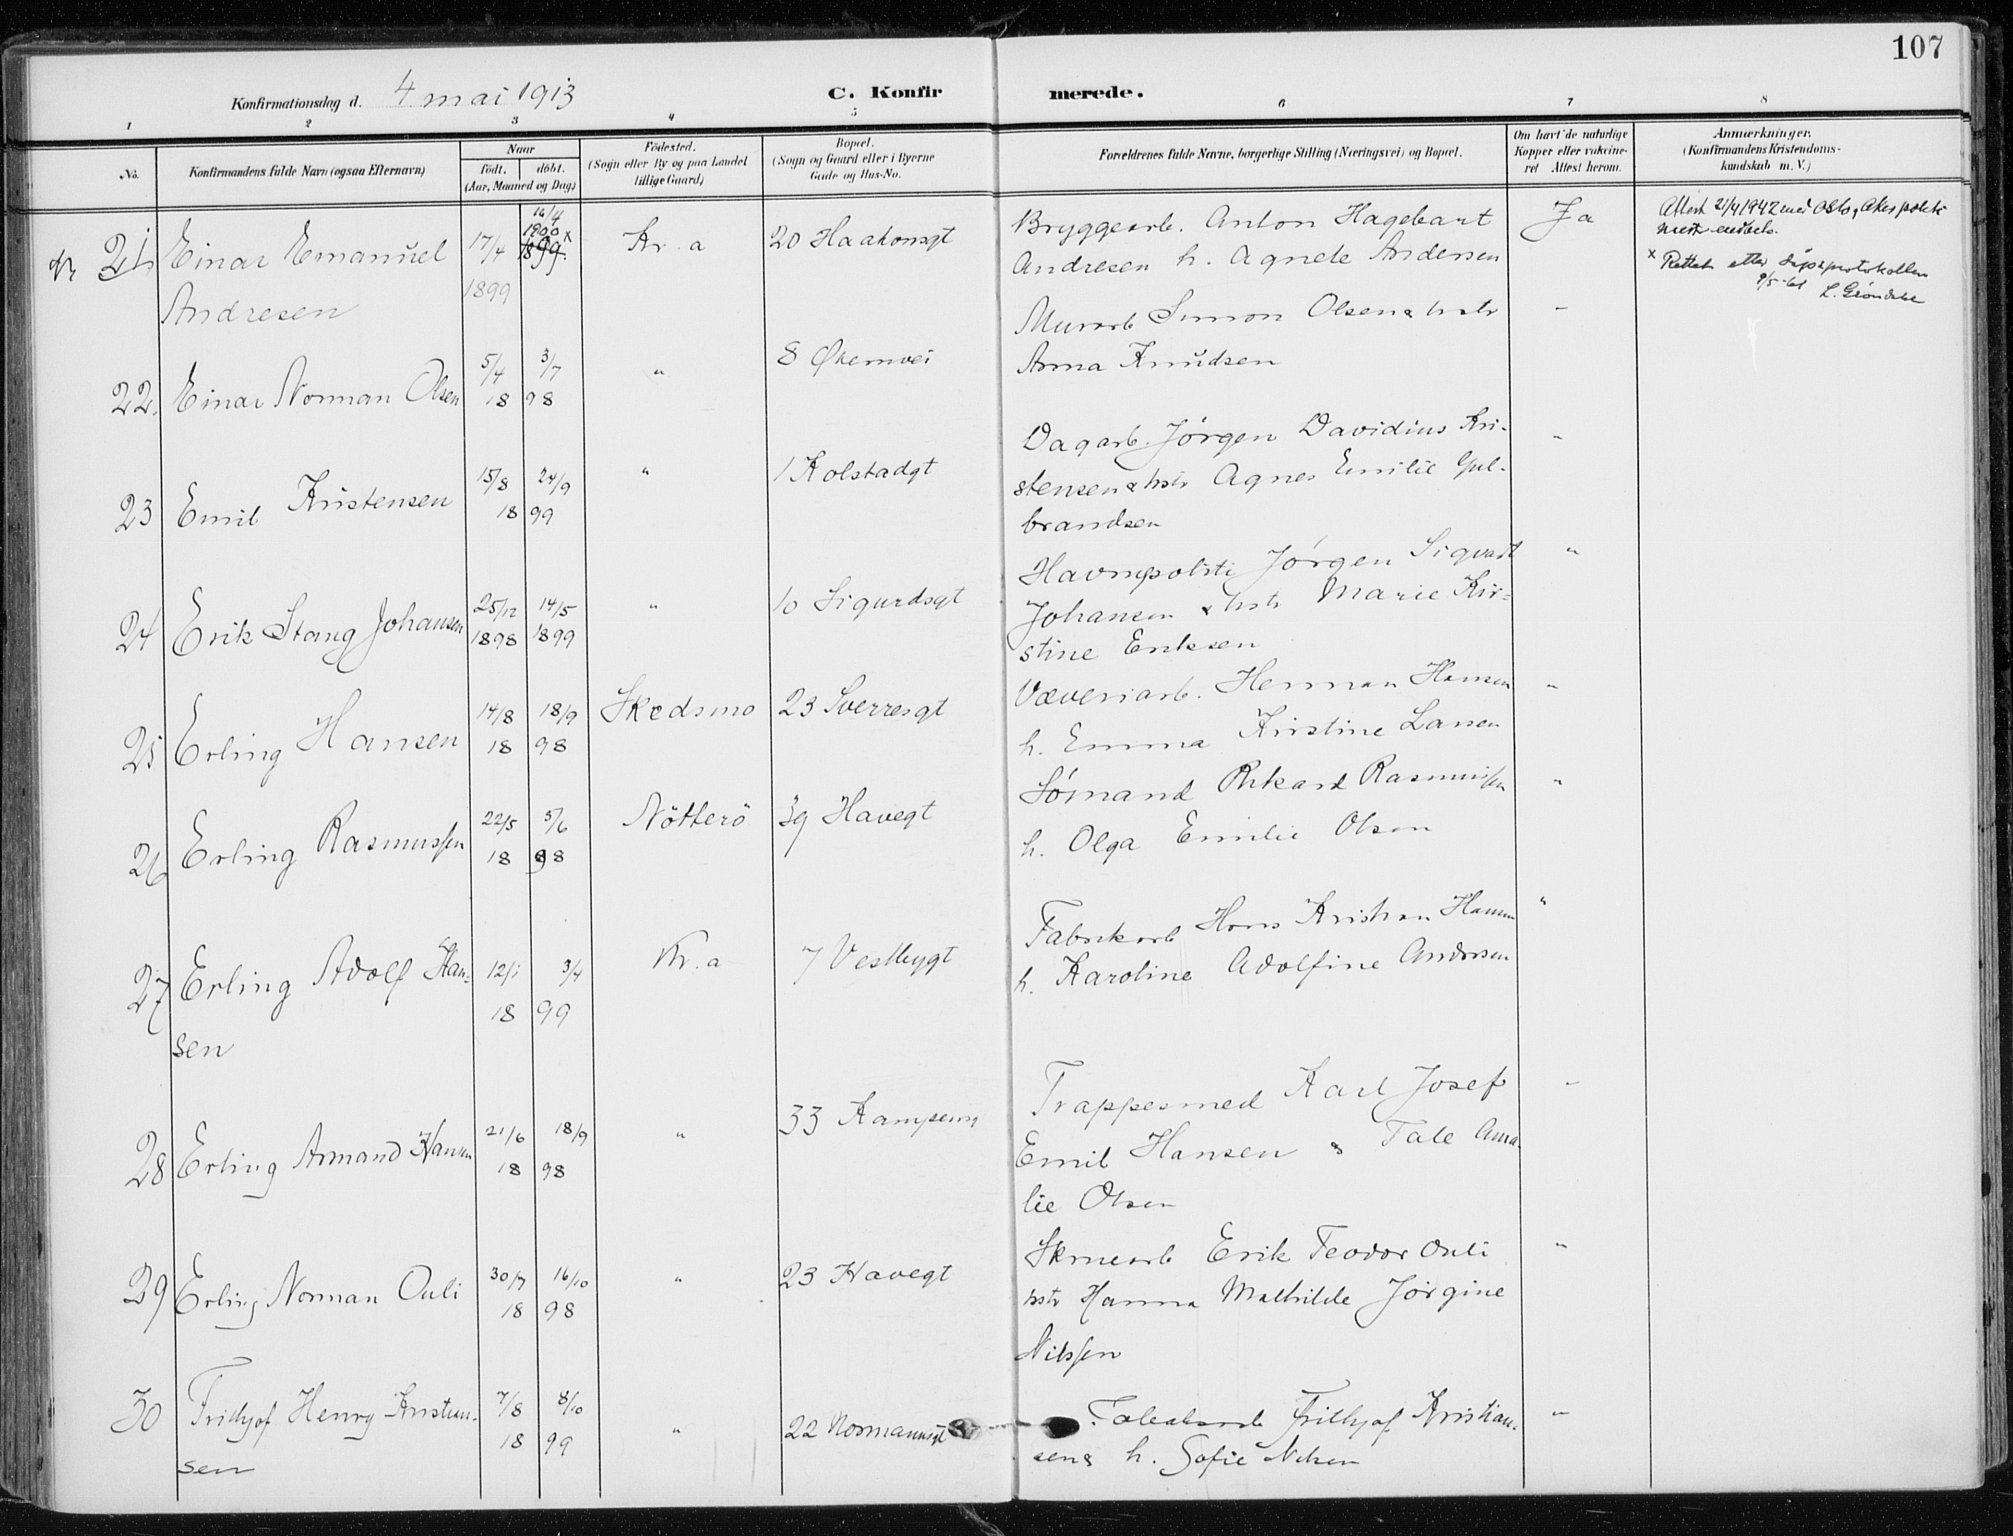 107
Konfirmationsdag d. 4 mai 1913
C. Konfirmerede.
1 2 3 4 5 6 7 8
No.
Konfirmandens fulde Navn (ogsaa Efternavn)
Naar
födt. döbt.
(Aar, Maaned og Dag)
Födested.
(Sogn eller By og paa Landet
tillige Gaard)
Bopæl.
(Sogn og Gaard eller i Byerne
Gade og Hus-No.
Forældrenes fulde Navne, borgerlige Stilling (Næringsvei) og Bopæl.
Om havt de naturlige
Kopper eller vakcine-
ret Attest herom.
Anmærkninger.
(Konfirmandens Kristendoms-
kundskab m. V.)
21 Einar Emanuel
Andresen
17/4
1899
16/4
1900 x
1899
Kr.a
20 Haakonsgt
Bryggearb. Anton Hagebart
Andresen h. Agnete Andersen
Ja
Attest 21/4 1942 Oslo,
x Rettet etter dåpsprotokollen
9/5-61
22. Einar Norman Olsen
5/4 3/7
18 98
"
8 Økernvei
Murarb Simon Olsen & hstr
Anna Knudsen
"
23 Emil Kristensen
15/8 24/9
18 99
"
1 Kolstadgt
Dagarb. Jörgen Davidius Kri-
stensen & hstr Agnes Emilie Gul-
brandsen
"
24 Erik Stang Johansen
25/12 14/5
1898 1899
"
10 Sigurdsgt
Havnepoliti Jörgen Sigvart
Johansen & hstr Marie Kri-
stine Eriksen
"
25 Erling Hansen
14/8 18/9
18 98
Skedsmo
23 Sverresgt
Væveriarb. Herman Hansen
h. Emma Kristine Larsen
"
26 Erling Rasmussen
22/5 5/6
18 98
Nötterö
39 Havegt
Sömand Rikard Rasmussen
h. Olga Emilie Olsen
"
27 Erling Adolf Han-
sen
12/1 3/4
18 99
Kr.a
7 Vestbygt
Fabrikarb Hans Kristian Hansen
h. Karoline Adolfine Andersen
"
28 Erling Armand Hansen
21/6 18/9
18 98
"
33 Kampeng
Trappesmed Karl Josef
Emil Hansen & Tale Ama-
lie Olsen
"
29 Erling Norman Ouli
30/7 16/10
18 98
"
23 Havegt
Erik Teodor Ouli
hstr Hanna Mathilde Jörgine
Nilssen
"
30 Fridtjof Henry Kristian-
sen
7/8 8/10
18 99
"
22 Normannsgt
Fridtjof Kristian-
sen & h. Sofie Nilsen
"